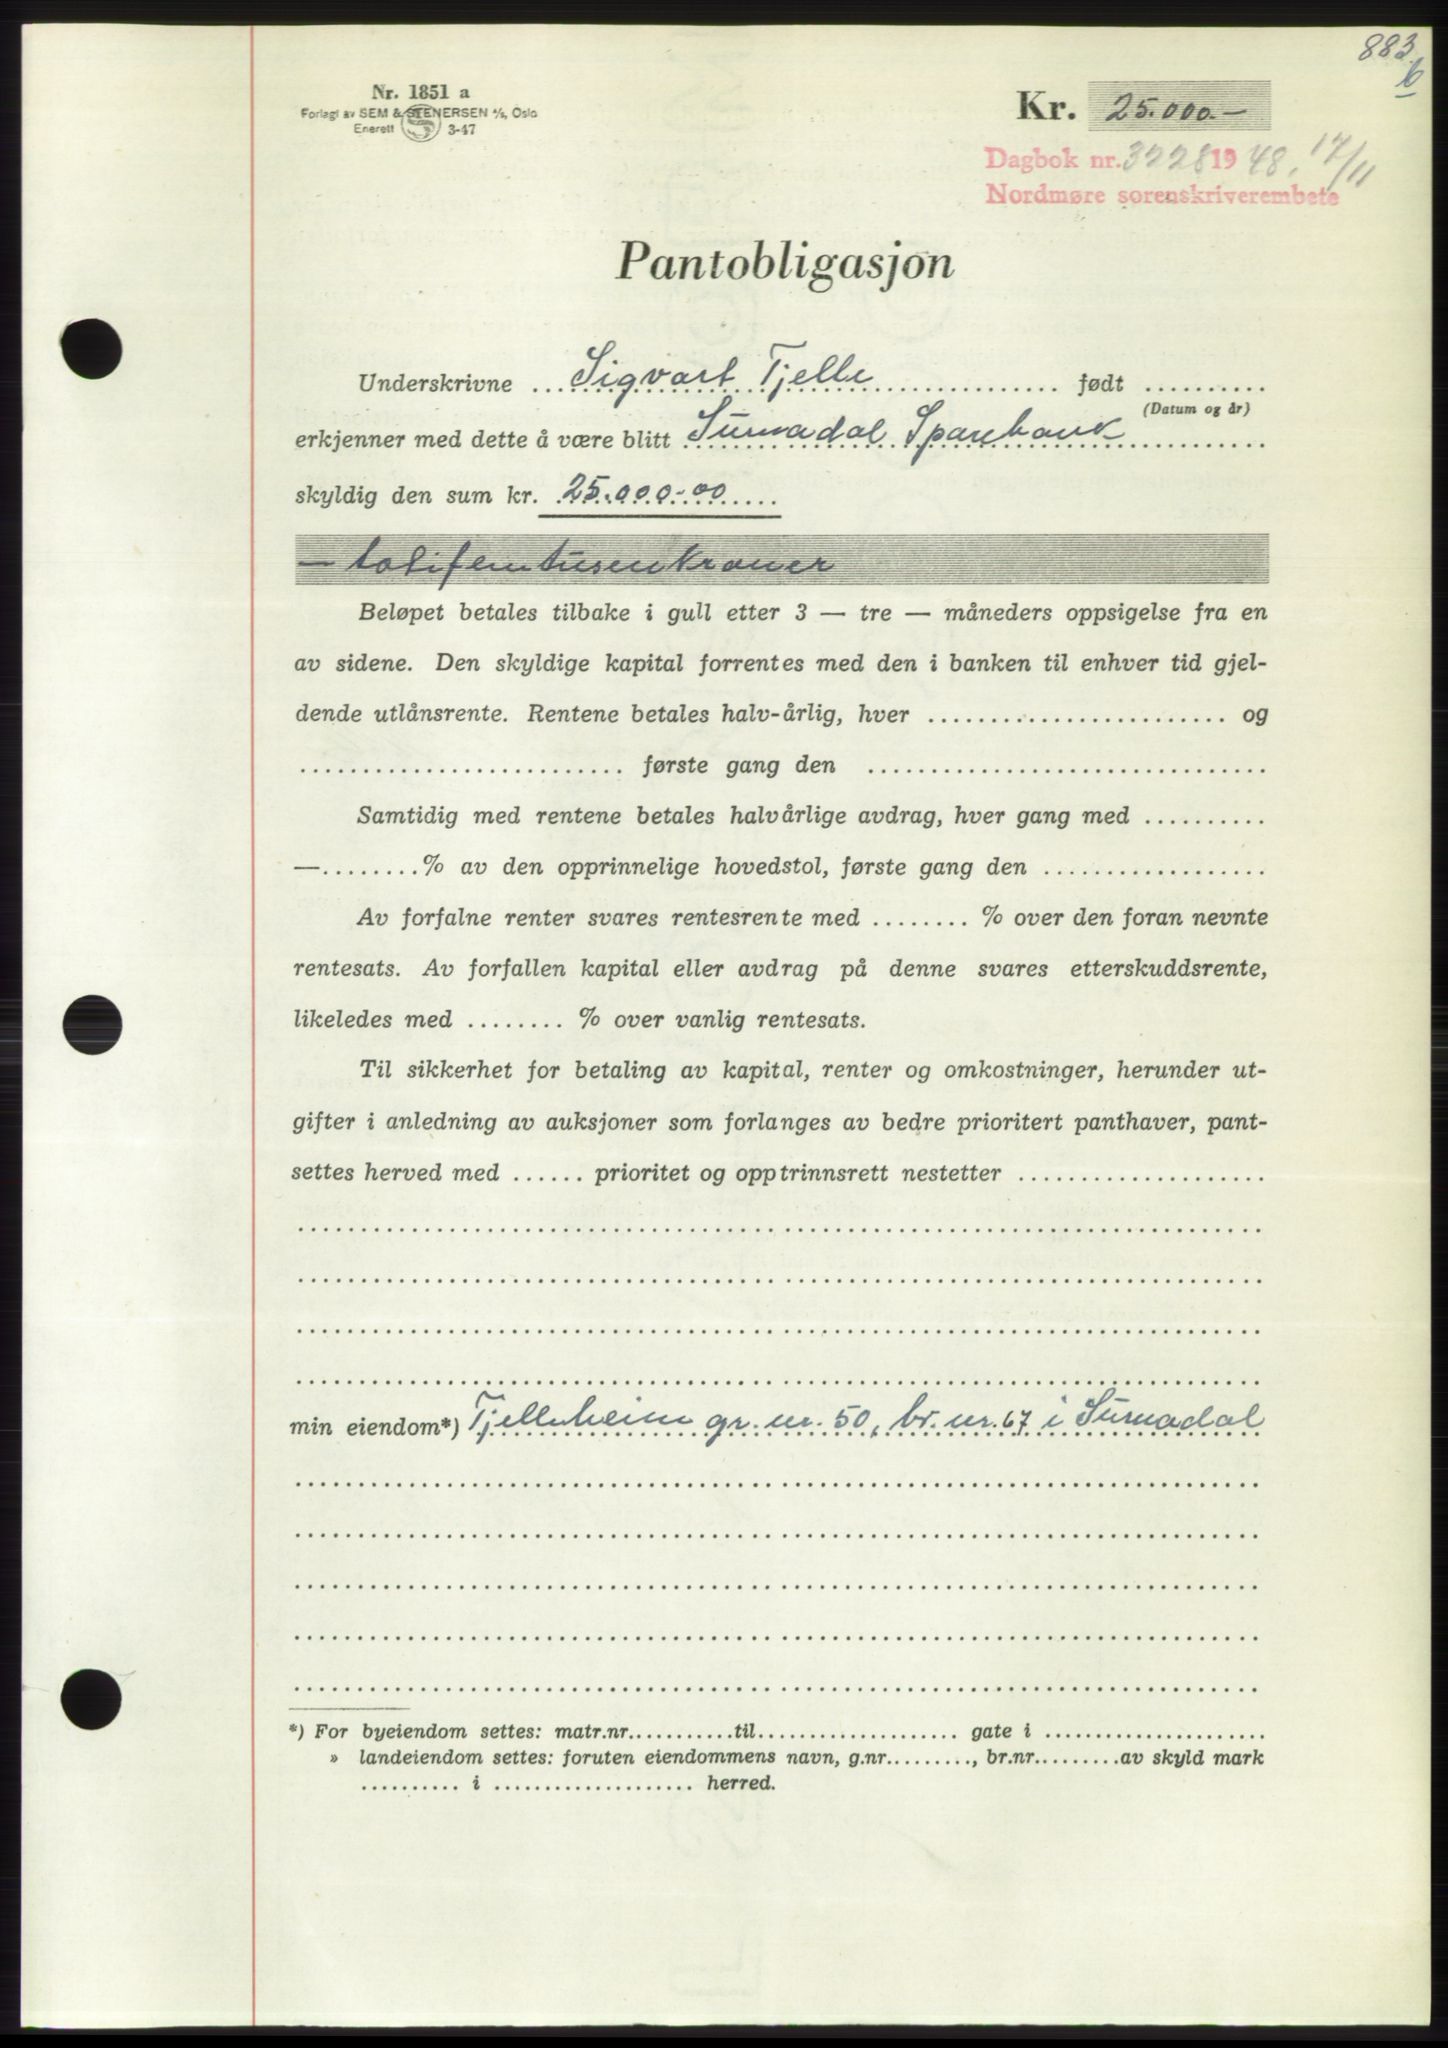 883
b
Nr. 1851 a
Forlagt av SEM & STENERSEN A/S, Oslo
Enerett 3-47
Kr. 25.000.-
Dagbok nr. 3228 19 48. 17/11
Nordmøre sorenskriverembete
Pantobligasjon
Underskrivne ... Sigvart Tjelle .............. født ..........
(Datum og år)
erkjenner med dette å være blitt Surnadal Sparebank ............
skyldig den sum kr. 25.000-00 ....
- totifemtusenkroner
Beløpet betales tilbake i gull etter 3 — tre — måneders oppsigelse fra en
av sidene. Den skyldige kapital forrentes med den i banken til enhver tid gjel-
dende utlånsrente. Rentene betales halv-årlig, hver ........................ og
.......................... første gang den ................................
Samtidig med rentene betales halvårlige avdrag, hver gang med ..........
—........% av den opprinnelige hovedstol, første gang den ..................
Av forfalne renter svares rentesrente med ........ % over den foran nevnte
rentesats. Av forfallen kapital eller avdrag på denne svares etterskuddsrente,
likeledes med ........ % over vanlig rentesats.
Til sikkerhet for betaling av kapital, renter og omkostninger, herunder ut-
gifter i anledning av auksjoner som forlanges av bedre prioritert panthaver, pant-
settes herved med ...... prioritet og opptrinnsrett nestetter ....................
min eiendom*) Tjelleheim gr. nr. 50, br. nr. 67 i Surnadal
*) For byeiendom settes: matr.nr...........til.................... gate i ......................
» landeiendom settes: foruten eiendommens navn, g.nr........., br.nr.........av skyld mark
.......... i .................... herred.